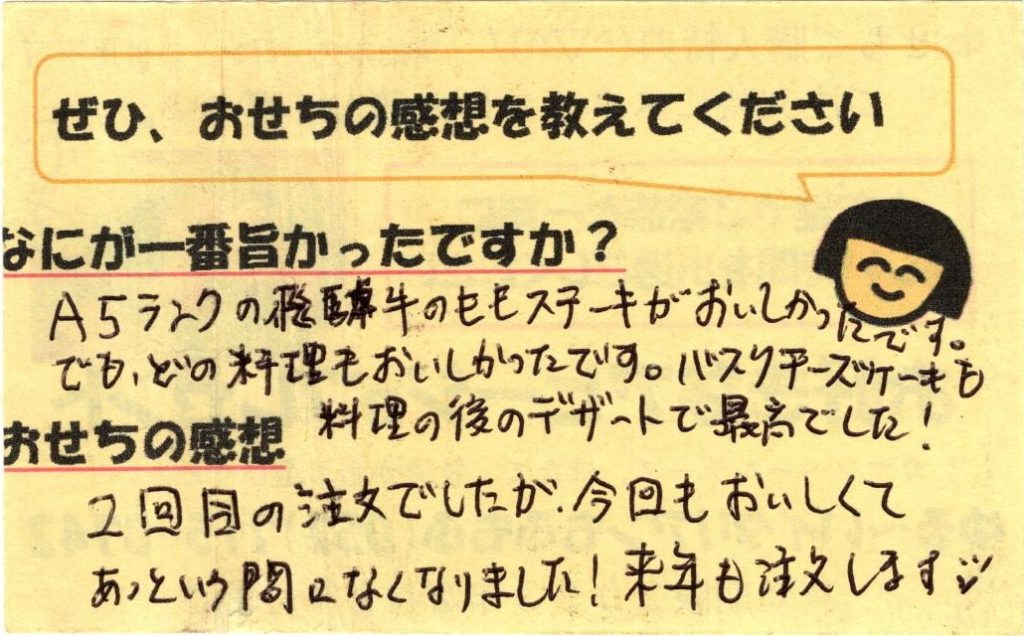 ぜひ、おせちの感想を教えてください
なにが一番旨かったですか？
A5ランクの飛騨牛のももステーキがおいしかったです。
でも、どの料理もおいしかったです。バスクチーズケーキも
料理の後のデザートで最高でした！
おせちの感想
2回目の注文でしたが、今回もおいしくて
あっという間になくなりました！来年も注文します